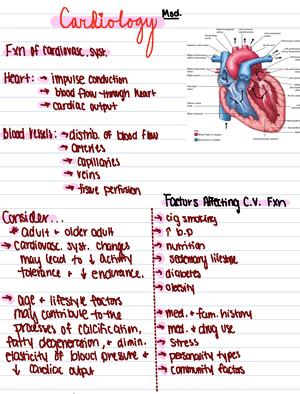 Cardiology Med.
Fxn of cardiovasc. syst.
Heart: → impulse conduction
→ blood flow through heart
→ cardiac output
Blood vessels: → distrib. of blood flow
→ arteries
→ capillaries
→ veins
→ tissue perfusion
Factors Affecting C.V. Fxn
Consider...
* adult + older adult
→ Cardiovasc. syst. changes
may lead to ↓ activity
tolerance + ↓ endurance.
→ age + lifestyle factors
may contribute to the
processes of calcification,
fatty degeneration, + dimin.
elasticity of blood pressure +
↓ cardiac output
→ cig smoking
→ ↑ b.p
→ nutrition
→ sedentary lifestyle
→ diabetes
→ obesity
→ med. + fam. history
→ med. + drug use
→ stress
→ personality types
→ community factors